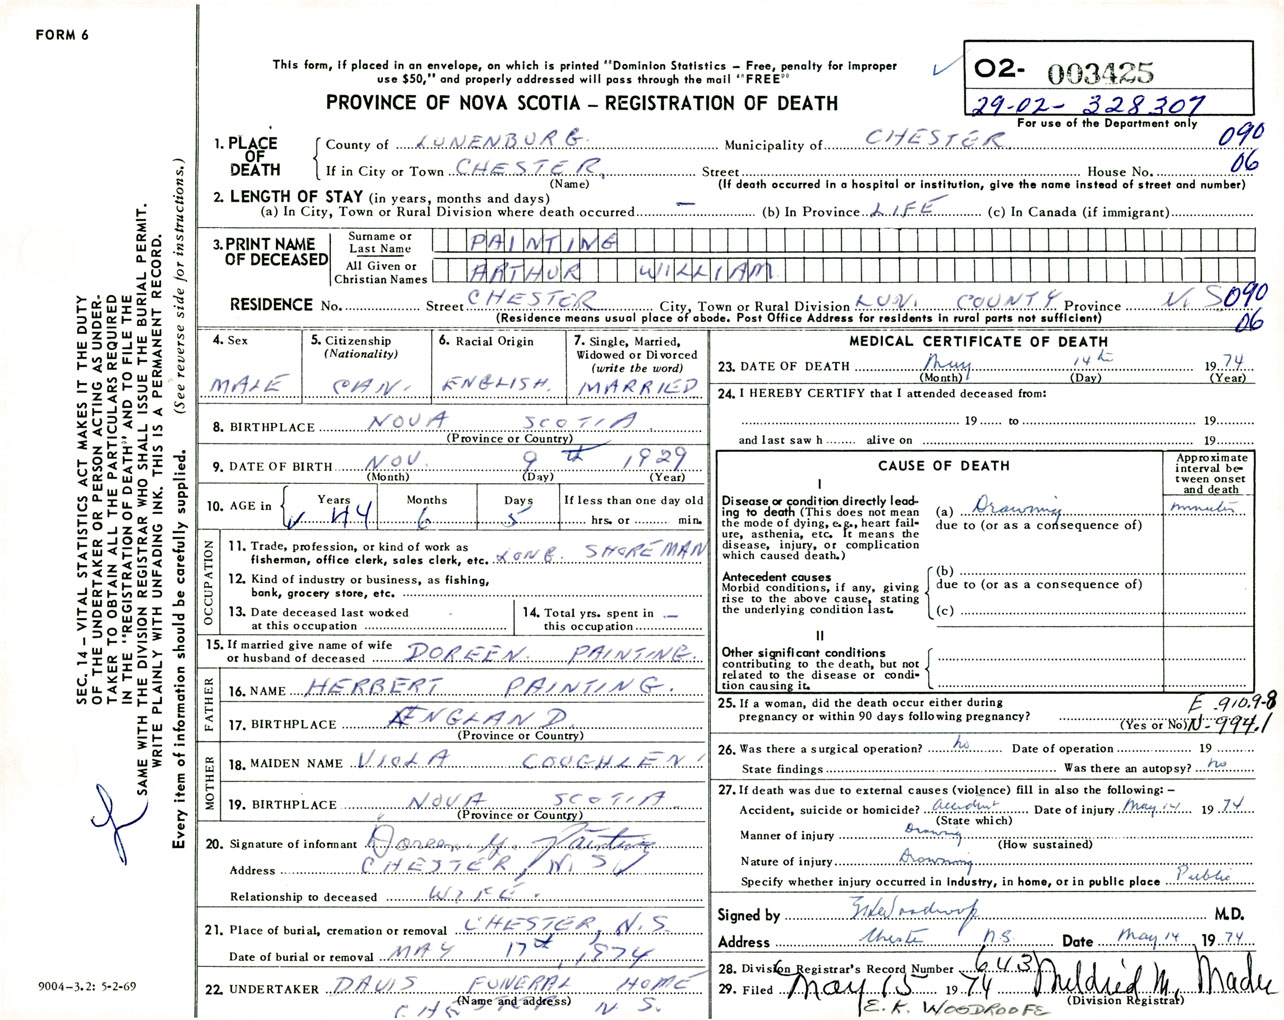 FORM 6
This form, if placed in an envelope, on which is printed "Dominion Statistics – Free, penalty for improper
use $50," and properly addressed will pass through the mail "FREE"
PROVINCE OF NOVA SCOTIA – REGISTRATION OF DEATH
02- 003425
29-02- 328307
For use of the Department only
1. PLACE OF DEATH
County of LUNENBURG. Municipality of CHESTER 090
If in City or Town CHESTER, Street House No. 06
(Name) (If death occurred in a hospital or institution, give the name instead of street and number)
2. LENGTH OF STAY (in years, months and days)
(a) In City, Town or Rural Division where death occurred — (b) In Province LIFE (c) In Canada (if immigrant)
3. PRINT NAME OF DECEASED
Surname or Last Name PAINTING
All Given or Christian Names ARTHUR WILLIAM
RESIDENCE No. Street CHESTER City, Town or Rural Division LUN. COUNTY Province N.S 090
(Residence means usual place of abode. Post Office Address for residents in rural parts not sufficient) 06
4. Sex
MALE
5. Citizenship
(Nationality)
CAN.
6. Racial Origin
ENGLISH.
7. Single, Married,
Widowed or Divorced
(write the word)
MARRIED
8. BIRTHPLACE NOVA SCOTIA.
(Province or Country)
9. DATE OF BIRTH NOV. 9th 1929
(Month) (Day) (Year)
10. AGE in Years Months Days If less than one day old
44 6 5 hrs. or min.
OCCUPATION
11. Trade, profession, or kind of work as
fisherman, office clerk, sales clerk, etc. LONG. SHOREMAN
12. Kind of industry or business, as fishing,
bank, grocery store, etc.
13. Date deceased last worked
at this occupation
14. Total yrs. spent in
this occupation —
15. If married give name of wife
or husband of deceased DOREEN. PAINTING.
FATHER
16. NAME HERBERT PAINTING.
17. BIRTHPLACE ENGLAND
(Province or Country)
MOTHER
18. MAIDEN NAME VIOLA COUGHLEN.
19. BIRTHPLACE NOVA SCOTIA.
(Province or Country)
20. Signature of informant Doreen Painting
Address CHESTER, N.S.
Relationship to deceased WIFE.
21. Place of burial, cremation or removal CHESTER, N.S.
Date of burial or removal MAY 17th, 1974
22. UNDERTAKER DAVIS FUNERAL HOME
(Name and address)
CHESTER N.S.
MEDICAL CERTIFICATE OF DEATH
23. DATE OF DEATH May 14th 1974
(Month) (Day) (Year)
24. I HEREBY CERTIFY that I attended deceased from:
19 to 19
and last saw h alive on 19
CAUSE OF DEATH
Approximate
interval be-
tween onset
and death
I
Disease or condition directly lead-
ing to death (This does not mean
the mode of dying, e.g., heart fail-
ure, asthenia, etc. It means the
disease, injury, or complication
which caused death.)
(a) Drowning minutes
due to (or as a consequence of)
Antecedent causes
Morbid conditions, if any, giving
rise to the above cause, stating
the underlying condition last.
(b)
due to (or as a consequence of)
(c)
II
Other significant conditions
contributing to the death, but not
related to the disease or condi-
tion causing it.
25. If a woman, did the death occur either during
pregnancy or within 90 days following pregnancy?
(Yes or No)
E 910.9-8
N-994.1
26. Was there a surgical operation? no Date of operation 19
State findings Was there an autopsy? no
27. If death was due to external causes (violence) fill in also the following: –
Accident, suicide or homicide? accident Date of injury May 14 1974
(State which)
Manner of injury Drowning
(How sustained)
Nature of injury Drowning
Specify whether injury occurred in industry, in home, or in public place Public
Signed by M.D.
Address Chester N.S. Date May 14 1974
28. Division Registrar's Record Number 643
29. Filed May 15 1974 Mildred M. Mader
(Division Registrar)
E.K. WOODROOFE
SEC. 14 – VITAL STATISTICS ACT MAKES IT THE DUTY
OF THE UNDERTAKER OR PERSON ACTING AS UNDER-
TAKER TO OBTAIN ALL THE PARTICULARS REQUIRED
IN THE "REGISTRATION OF DEATH" AND TO FILE THE
SAME WITH THE DIVISION REGISTRAR WHO SHALL ISSUE THE BURIAL PERMIT.
WRITE PLAINLY WITH UNFADING INK. THIS IS A PERMANENT RECORD.
Every item of information should be carefully supplied. (See reverse side for instructions.)
9004–3.2: 5-2-69